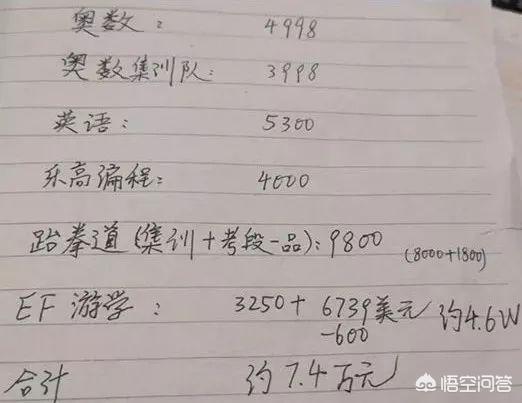 奥数: 4998
奥数集训队: 3998
英语: 5300
乐高编程: 4000
跆拳道(集训+考段一品): 9800 (8000+1800)
EF 游学: 3250+ 6739美元 约4.6W
-600
合计 约7.4万元
悟空问答